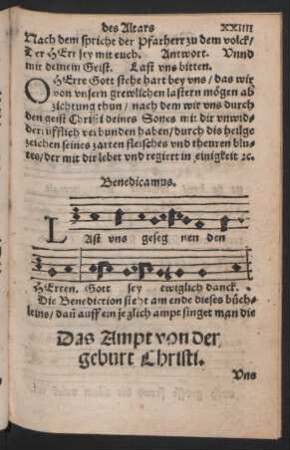 des Altars XXIIII
Nach dem spricht der Pfarherr zu dem volck/
Der HErr sey mit euch. Antwort. Vnnd
mit deinem Geist. Last vns bitten.
O HErre Gott stehe hart bey vns/das wir
von vnsern grewlichen lastern mögen ab
zichtung thun/nach dem wir vns durch
den geist Christi deines Sones mit dir vnwid-
derrüfflich verbunden haben/durch die heilge
zeichen seines zarten fleisches vnd thewren blu-
tes/der mit dir lebet vnd regiert in einigkeit ꝛc.
Benedicamus.
LAst vns geseg nen den
HErren. Gott sey ewiglich danck.
Die Benediction steht am ende dieses büch-
leins/dañ auff ein jezlich ampt singet man die
Das Ampt von der
geburt Christi.
Vns